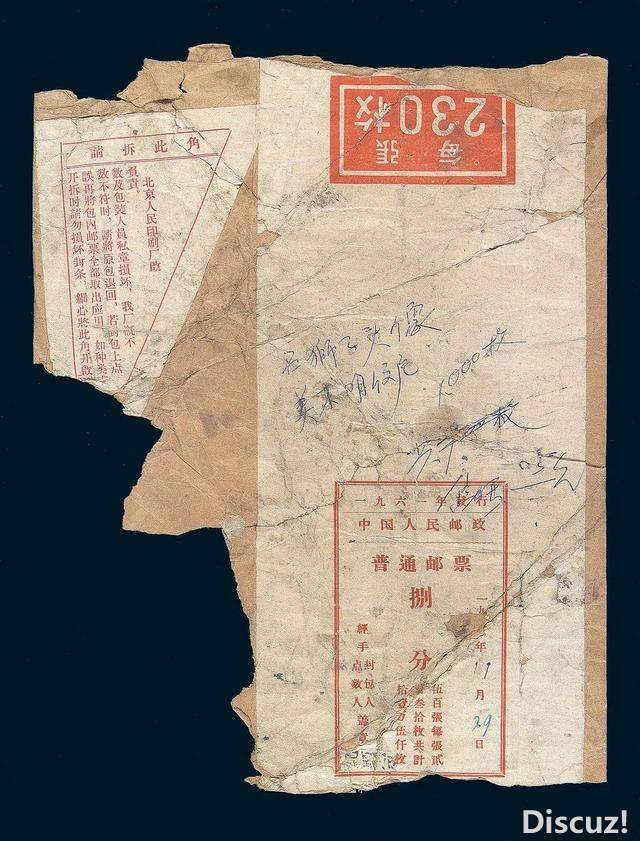 每張
230枚
請拆此角
開拆时請勿損坏封条,細心將此角开啟
誤再將包內邮票全部取出应用,如种类
數不符时,請將原包退回,若封包上点
數及包裝人員私章損坏,我厂概不
負責。
北京人民印刷厂啟
石獅子头像
1000枚
一九六 年發行
中国人民邮政
普通邮票
捌分
伍百張每張貳
叁拾枚共計
拾壹万伍仟枚
封包人
經手点数人蓋章
一九 年 11 月 29 日
Discuz!